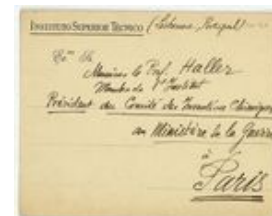 INSTITUTO SUPERIOR TECNICO (Lisbonne, Portugal)
Monsieur le Prof. Haller
Membre de l'Institut
Président du Comité des Inventions Chimiques
au Ministère de la Guerre
à
Paris